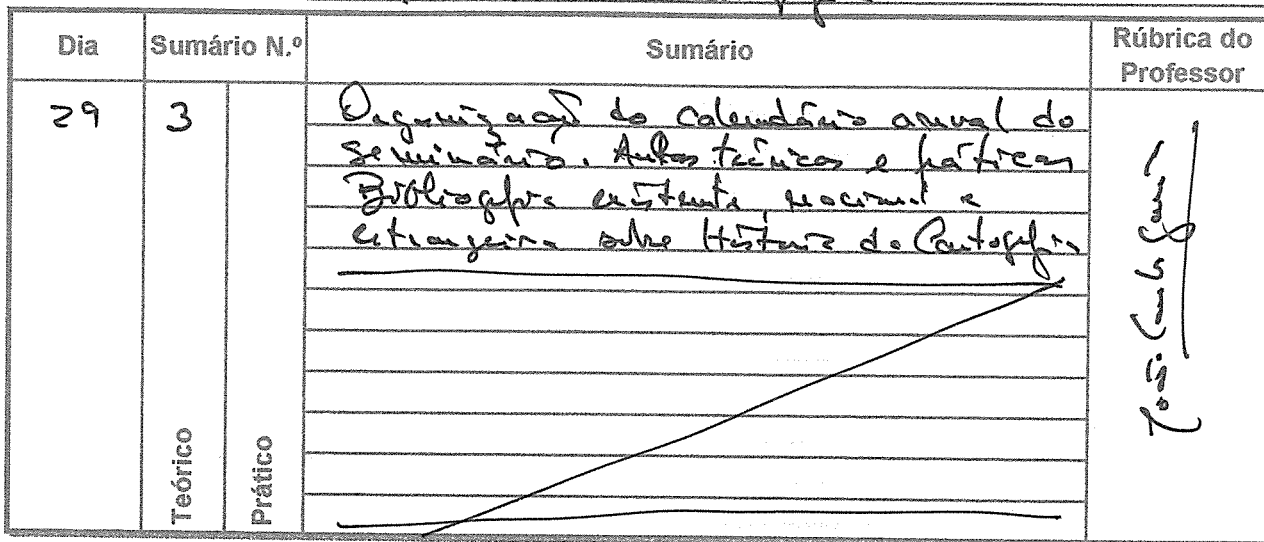 Dia
Sumário N.º
Sumário
Rúbrica do
Professor
29
3
Organização do calendário anual do
seminário. Aulas teóricas e práticas
Bibliografia existente, nacional e
estrangeira sobre História da Cartografia
José Carlos
Teórico
Prático